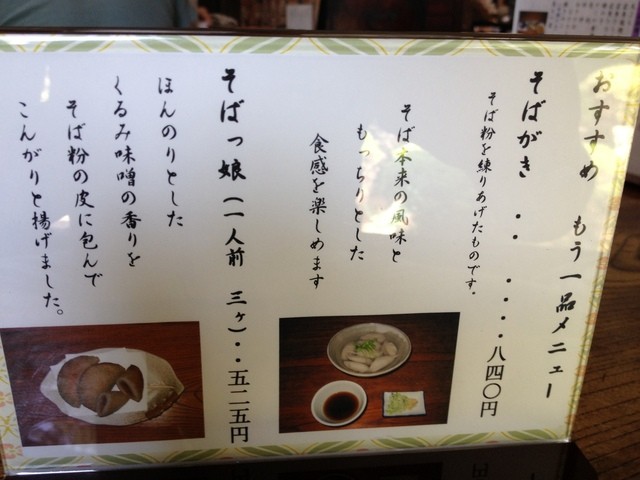 おすすめ もう一品メニュー
そばがき・・・・・・八四〇円
そば粉を練りあげたものです。
そば本来の風味と
もっちりとした
食感を楽しめます
そばっ娘(一人前 三ヶ)・・五二五円
ほんのりとした
くるみ味噌の香りを
そば粉の皮に包んで
こんがりと揚げました。